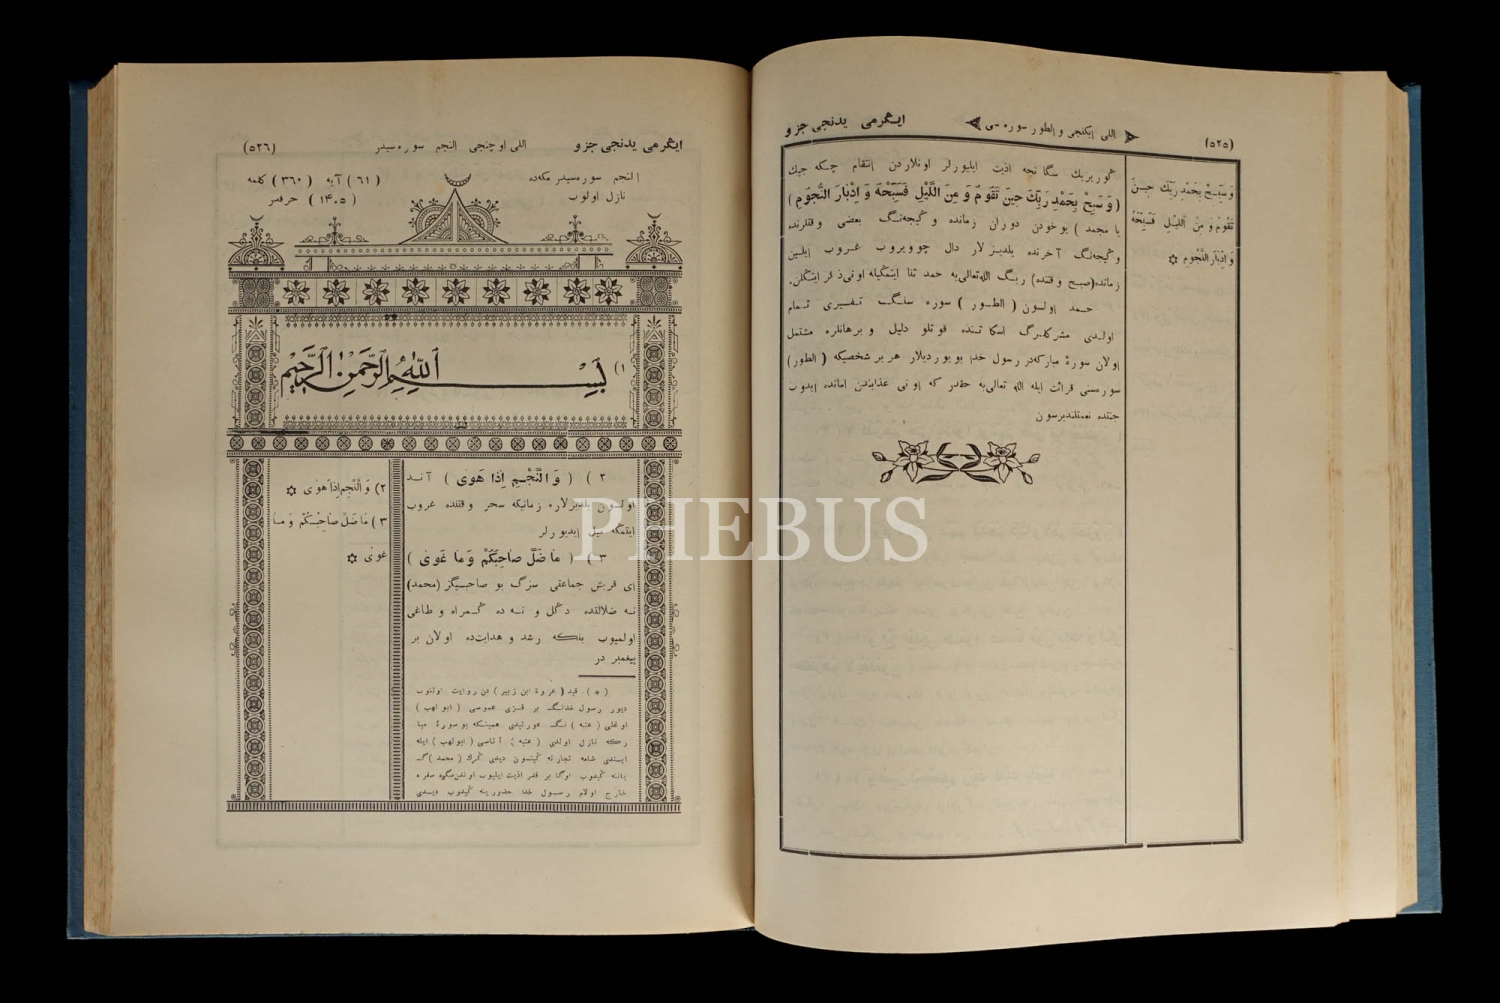 (٥٢٥) اللی ایکنجی والطور سوره‌سی ایگرمی یدنجی جزو
وَ سَبِّحْ بِحَمْدِ رَبِّكَ حِينَ
تَقُومُ وَ مِنَ اللَّيْلِ فَسَبِّحْهُ
وَ اِدْبَارَ النُّجُومِ ۞
گوریریك سگا نجه اذیت ایلیورلر اونلاردن اِنتقام چکه جیك
( وَ سَبِّحْ بِحَمْدِ رَبِّكَ حِينَ تَقُومُ وَ مِنَ اللَّيْلِ فَسَبِّحْهُ وَ اِدْبَارَ النُّجُومِ )
یا محمد ) یوخودن دوران زمانده و گیجه‌نگ بعضی وقتلرنده
و گیجه‌نگ آخرنده یلدیزلار دال چوویروب غروب اِیلین
زمانده(صبح وقتنده) ربگ الله‌تعالی‌یه حمد ثنا ایتمگیله اونی ذکر ایتگلن.
حمد اولسون ( الطور ) سوره سنگ تفسیری تمام
اولدی مشرکلرگ قوتلو دلیل و برهانلره مشتمل
اولان سورهٔ مبارکه‌در رسول خدا بویوردیلار هر بر شخصیکه ( الطور )
سوره‌سنی قرائت ایله الله تعالی‌یه حقدر که اونی عذابندن امانده ایدوب
جنتده نعمتلندیرسون
ایگرمی یدنجی جزو اللی اوچنجی النجم سوره‌سیدر (٥٢٦)
النجم سوره‌سیدر مکه‌ده ( ٦١ ) آیه ( ٣٦٠ ) کلمه
نازل اولوب ( ١٤٠٥ ) حرفدر
١) بِسْمِ اللهِ الرَّحْمٰنِ الرَّحِيمِ
٢ ) ( وَ النَّجْمِ اِذَا هَوٰى ) آند
اولسون یلدیزلاره زمانیکه سحر وقتنده غروب
ایتمگه میل ایدیورلر
٣ ) ( مَا ضَلَّ صَاحِبُكُمْ وَ مَا غَوٰى )
ای قریش جماعتی سزگ بو صاحبیگز (محمد)
نه ضلالتده دگل و نه ده گمراه و طاغی
اولمیوب بلکه رشد و هدایت‌ده اولان بر
پیغمبر در
٢) وَ النَّجْمِ اِذَا هَوٰى ۞
٣ ) مَا ضَلَّ صَاحِبُكُمْ وَ مَا
غَوٰى ۞
( * ) ( عروة ابن زبیر ) دن روایت اولنوب
دیور رسول خدانگ بر قزی عموسی ( ابولهب )
اوغلی ( عتبه ) نگ عورتیدی همینکه بو سورهٔ مبا
رکه نازل اولدی ( عتبه ) آتاسی ( ابولهب ) ایله
ایستدی شامه تجارته گیتسون دیدی گرك ( محمد ) گ
یاننه گیدوب اوگا بر قدر اذیت ایلیوب اوندن‌صگره سفره
خارج اولام رسول خدا حضورینه گیدوب دیدی
PHEBUS